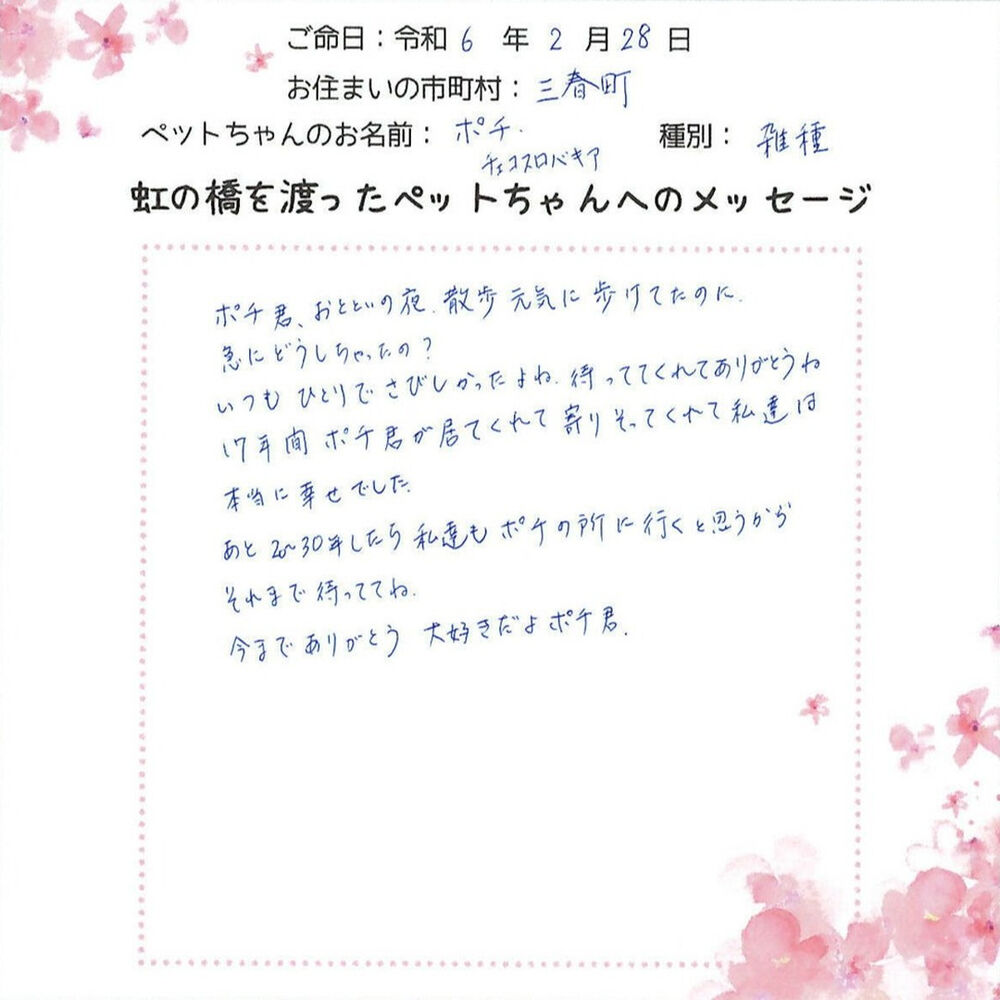 ご命日：令和 6 年 2 月 28 日
お住まいの市町村：三春町
ペットちゃんのお名前：ポチ. 種別：雑種
チェコスロバキア
虹の橋を渡ったペットちゃんへのメッセージ
ポチ君、おとといの夜、散歩元気に歩けてたのに.
急にどうしちゃったの？
いつもひとりでさびしかったよね. 待っててくれてありがとうね
17年間ポチ君が居てくれて寄りそってくれて私達は
本当に幸せでした.
あと20~30年したら私達もポチの所に行くと思うから
それまで待っててね.
今までありがとう 大好きだよポチ君.